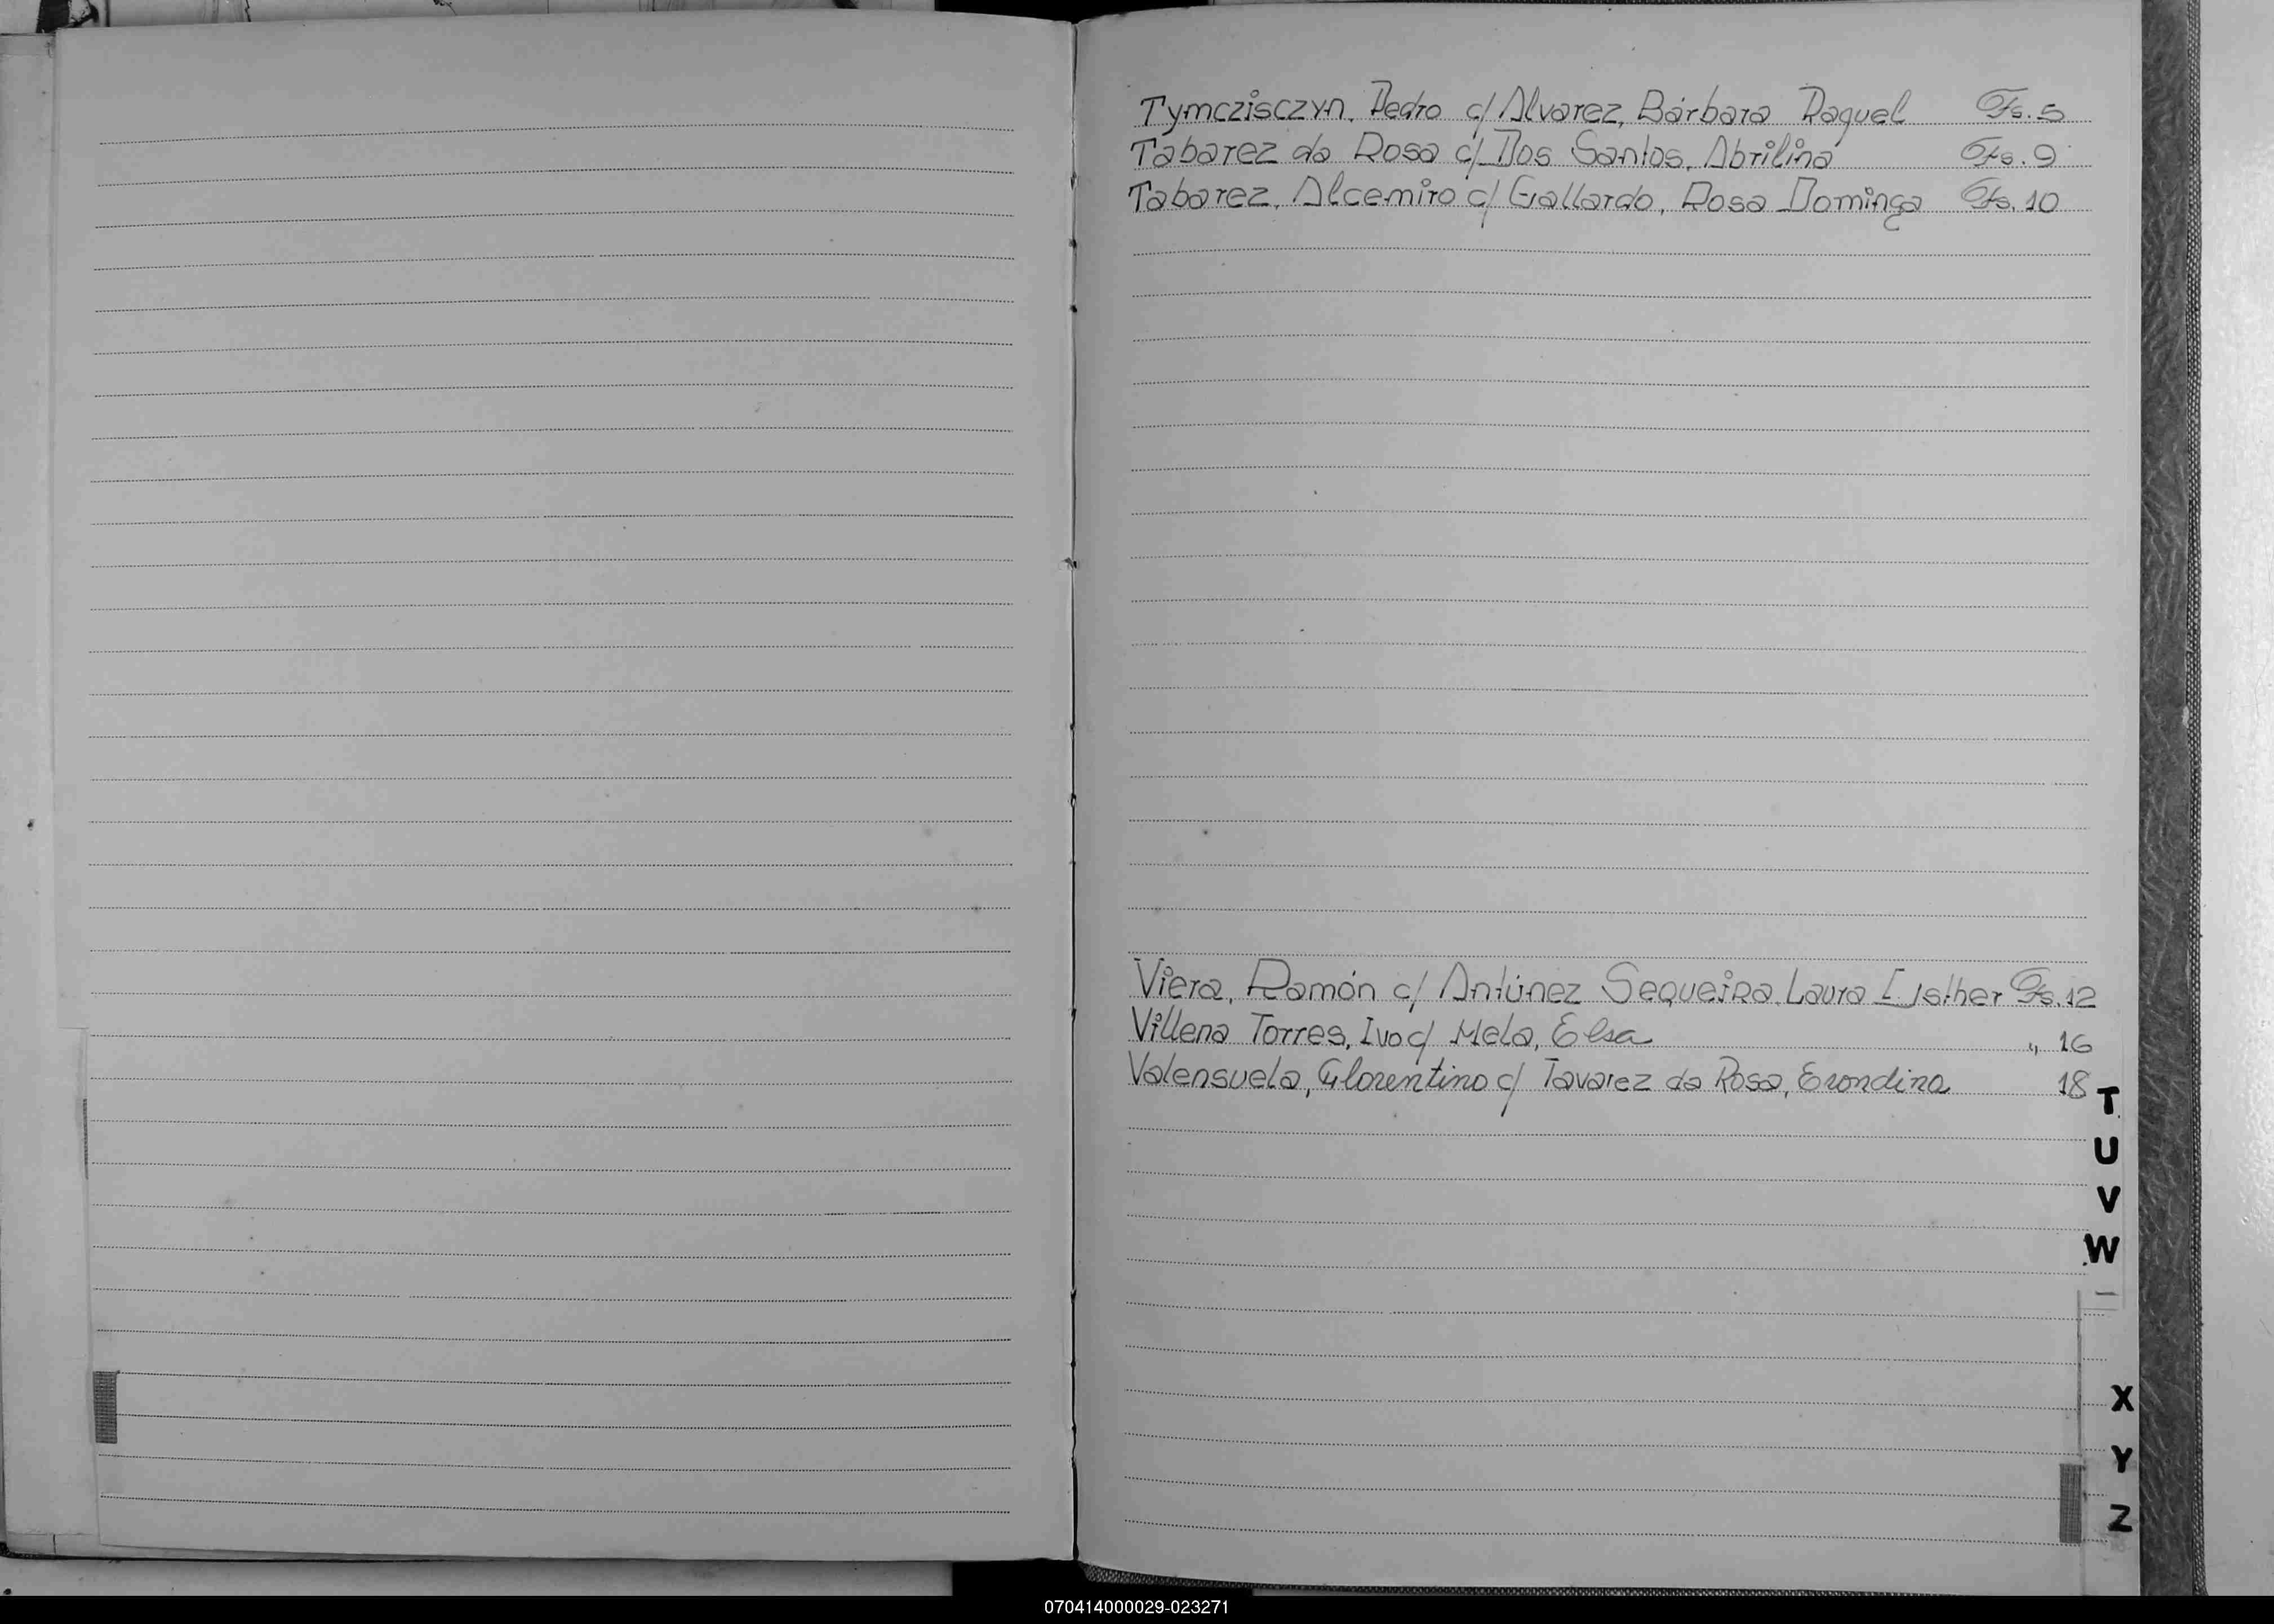 Tymczisczyn, Pedro c/ Alvarez, Bárbara Raquel Fs. 5
Tabarez da Rosa c/ Dos Santos, Abrilina Fs. 9
Tabarez, Alcemiro c/ Gallardo, Rosa Dominga Fs. 10
Viera, Ramón c/ Antúnez Sequeira Laura Esther Fs. 12
Villena Torres, Ivo c/ Mela, Elsa " 16
Valensuela, Florentino c/ Tavarez da Rosa, Erondina 18
T
U
V
W
X
Y
Z
070414000029-023271